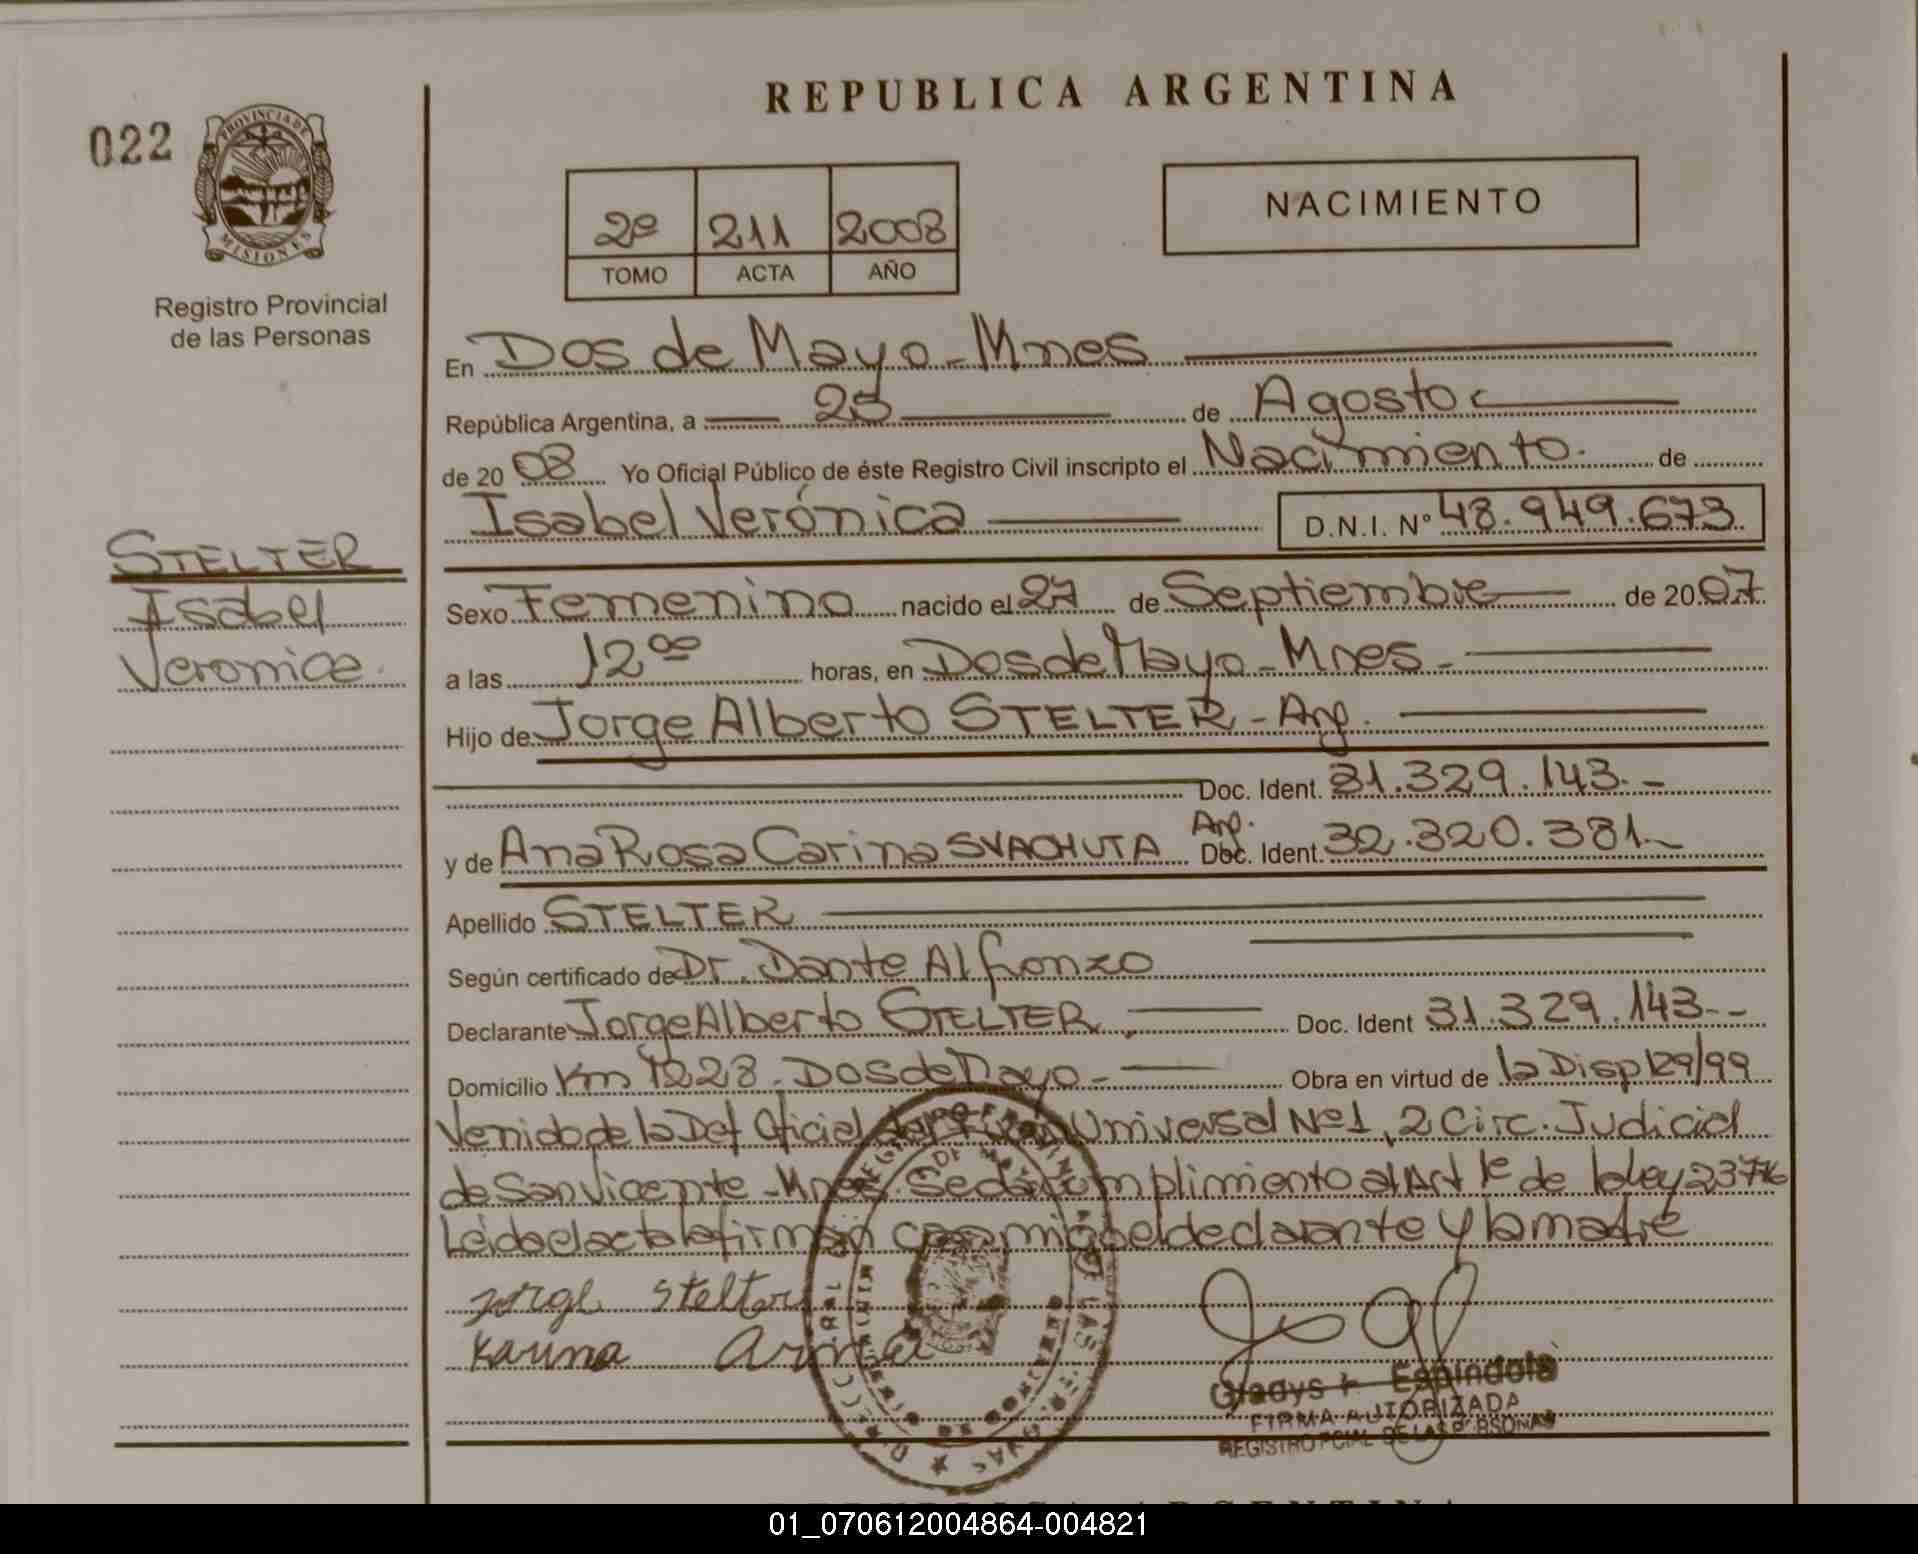 REPUBLICA ARGENTINA
022
PROVINCIA DE
MISIONES
Registro Provincial
de las Personas
NACIMIENTO
2º 211 2008
TOMO ACTA AÑO
En Dos de Mayo - Mnes
República Argentina, a 25 de Agosto
de 2008 Yo Oficial Público de éste Registro Civil inscripto el Nacimiento. de
Isabel Verónica D.N.I. Nº 48.949.673
STELTER
Isabel
Veronica.
Sexo Femenino nacido el 27 de Septiembre de 2007
a las 12 ºº horas, en Dos de Mayo - Mnes -
Hijo de Jorge Alberto STELTER - Arg.
Doc. Ident. 31.329.143. -
Arg.
y de Ana Rosa Carina SVACHUTA Doc. Ident. 32.320.381. -
Apellido STELTER
Según certificado de Dr. Dante Alfonzo
Declarante Jorge Alberto STELTER, Doc. Ident 31.329.143 - -
Domicilio Km 1228. Dos de Mayo - Obra en virtud de la Disp 129/99
Venido de la Def Oficial Universal Nº 1, 2 Circ. Judicial
de San Vicente - Mnes. Se da cumplimiento al Art 1º de la ley 23776
Leida el acta la firman con migo el declarante y la madre
jorge stelter
Karina
Gladys Espindola
FIRMA AUTORIZADA
REGISTRO PCIAL DE LAS PERSONAS
REPUBLICA ARGENTINA
01_070612004864-004821